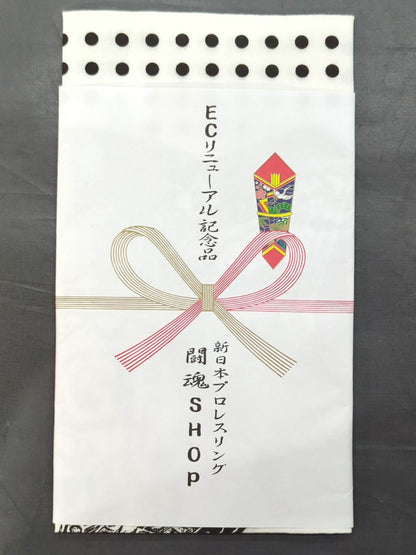 ECリニューアル記念品
新日本プロレスリング
闘魂SHOp